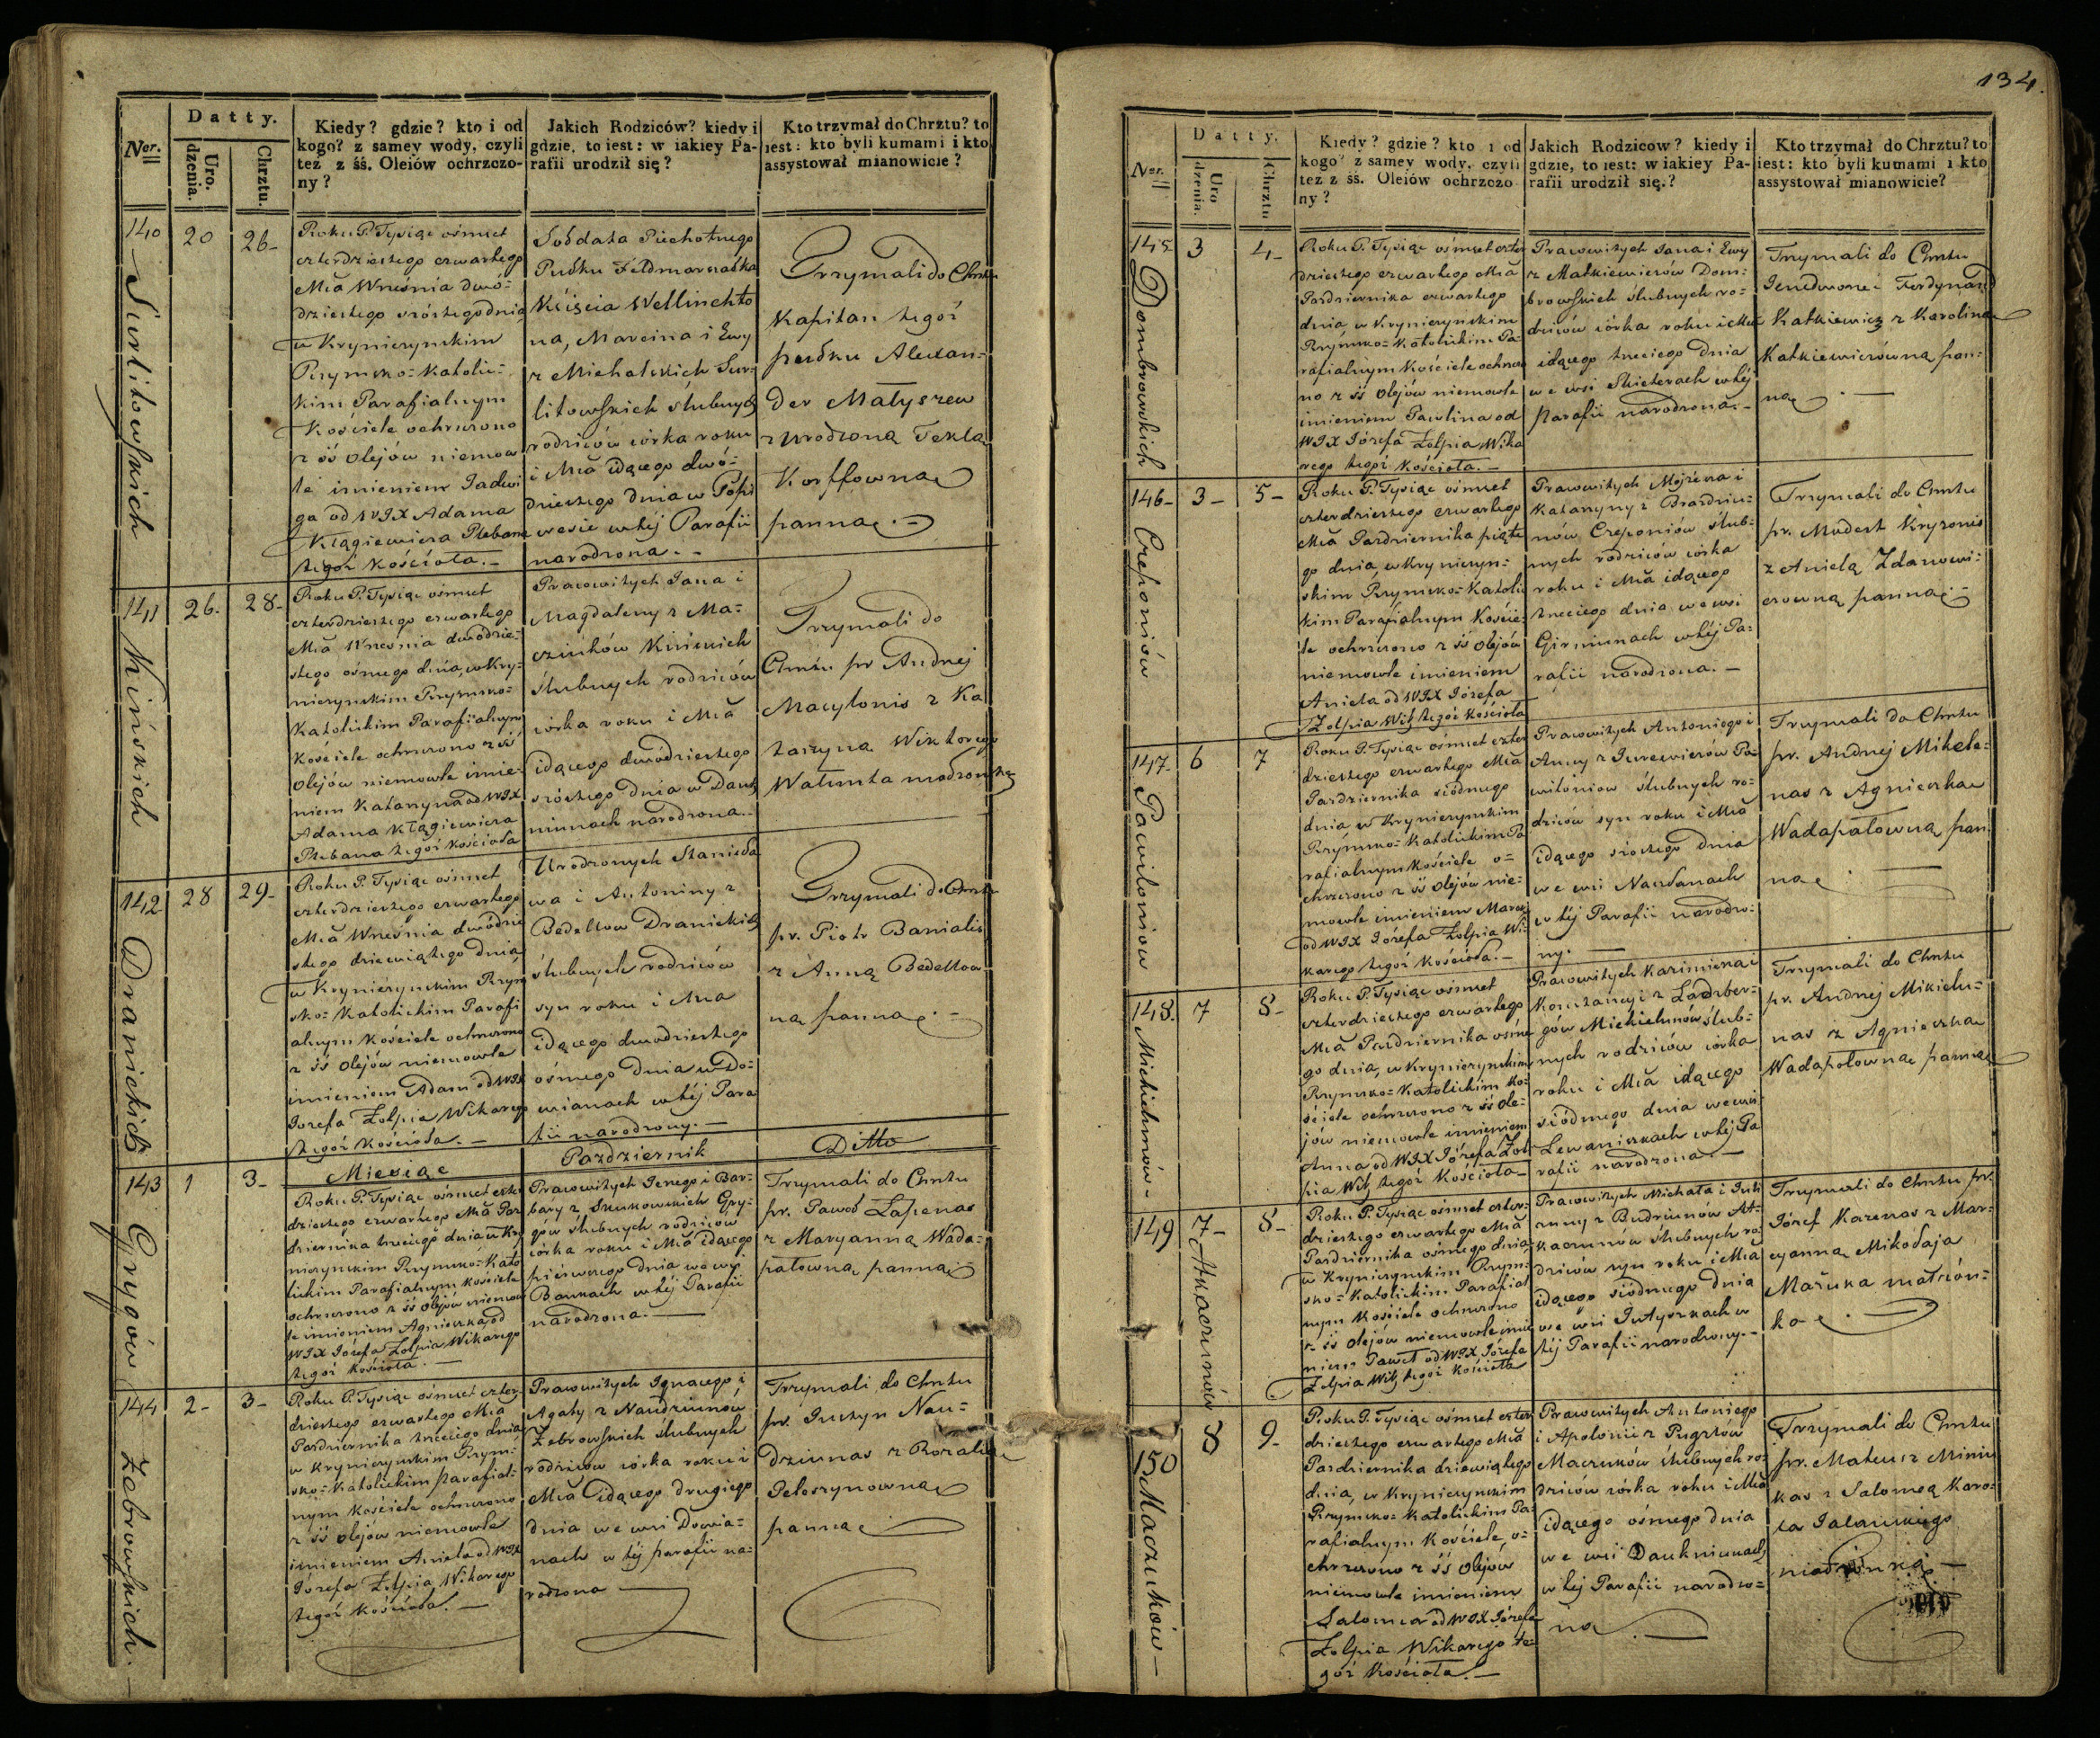 Ner.
Datty.
Uro.
dzenia.
Chrztu.
Kiedy? gdzie? kto i od
kogo? z samey wody, czyli
też z śś. Oleiów ochrzczo-
ny?
Jakich Rodziców? kiedy i
gdzie, to iest: w iakiey Pa-
rafii urodził się?
Kto trzymał do Chrztu? to
iest: kto byli kumami i kto
assystował mianowicie?
140
Surlitowskich
20
26-
Roku P. Tysiąc ośmset
czterdziestego czwartego
Mca Września dwó-
dziestego szóstego dnia
w Kryniczynskim
Rzymsko-Katolic-
kim Parafialnym
Kościele ochrzczono
z śś Olejów niemow
le imieniem Jadwi
ga od WJX Adama
Kłągiewicza Plebana
tegóż Kościoła.-
Sołdata Piechotnego
Pułku Feldmarszałka
Xięścia Wellinchto
na, Marcina i Ewy
z Michalskich Sur-
litowskich ślubnych
rodziców córka roku
i Mca idącego dwó-
dziestego dnia w Popi
wesie w téj Parafii
narodzona.-
Trzymali do Chrztu
Kapitan tegóż
pułku Alexan-
der Małyszew
z Urodzoną Teklą
Korffowną
panną.-
141
Kińskich
26.
28-
Roku P. Tysiąc ośmset
czterdziestego czwartego
Mca Września dwódzie-
stego ósmego dnia, w Kry-
niczynskim Rzymsko-
Katolickim Parafialnym
Kościele ochrzczono z śś
Olejów niemowle imie-
niem Katarzyna od WJX
Adama Kłągiewicza
Plebana tegóż Kościoła
Pracowitych Jana i
Magdaleny z Ma-
cziuków Kińskich
ślubnych rodziców
córka roku i Mca
idącego dwódziestego
szóstego dnia w Dauk
niunach narodzona.-
Trzymali do
Chrztu pr Andrzej
Macylonis z Ka
tarzyną Wiktorego
Walunta małżonką
142
Dranickich
28
29-
Roku P. Tysiąc ośmset
czterdziestego czwartego
Mca Września dwódzie
stego dziewiątego dnia,
w Kryniczynskim Rzym
sko-Katolickim Parafi
alnym Kościele ochrzczono
z śś Olejów niemowle
imieniem Adam od WJX
Jozefa Żołpia Wikarego
tegóż Kościoła.-
Urodzonych Stanisła
wa i Antoniny z
Bedellow Dranickich
ślubnych rodziców
syn roku i Mca
idącego dwodziestego
ośmego dnia w Do-
wianach w téj Para
fii narodzony.-
Trzymali do Chrztu
pr. Piotr Banialis
z Anną Bedellow
ną panną.-
Miesiąc
Pazdziernik
Ditto
143
Grygów
1
3-
Roku P. Tysiąc ośmset czter
dziestego czwartego Mca Paz
dziernika trzeciego dnia w Kry
niczynskim Rzymsko-Kato
lickim Parafialnym Kościele
ochrzczono z śś Olejów niemow
le imieniem Agnieszka od
WJX Józefa Żołpia Wikarego
tegóż Kościoła.-
Pracowitych Jerzego i Bar-
bary z Skurkowskich Gry-
gów ślubnych rodziców
córka roku i Mca idącego
pierwszego dnia we wsi
Baukach w téj Parafii
narodzona.-
Trzymali do Chrztu
pr. Paweł Łapenas
z Maryanną Wada-
pałowną panną.-
144
Żebrowskich.-
2-
3-
Roku P. Tysiąc ośmset czter-
dziestego czwartego Mca
Pazdziernika trzeciego dnia
w Kryniczynskim Rzym-
sko-Katolickim parafial-
nym Kościele ochrzczono
z śś Olejów niemowle
imieniem Aniela od WJX
Józefa Żołpia Wikarego
tegóż Kościoła.-
Pracowitych Ignacego i
Agaty z Naudziunów
Żebrowskich ślubnych
rodziców córka roku i
Mca idącego drugiego
dnia we wsi Dowia-
nach w téj parafii na-
rodzona
Trzymali do Chrztu
pr. Justyn Nau-
dziunas z Rozalią
Peloszynowną
panną
134.
Ner.
Datty.
Uro
dzenia.
Chrztu
Kiedy? gdzie? kto i od
kogo? z samey wody, czyli
też z śś. Oleiów ochrzczo
ny?
Jakich Rodziców? kiedy i
gdzie, to iest: w iakiey Pa-
rafii urodził się.?
Kto trzymał do Chrztu? to
iest: kto byli kumami i kto
assystował mianowicie?
145
Dombrowskich
3
4-
Roku P. Tysiąc ośmset czter
dziestego czwartego Mca
Pazdziernika czwartego
dnia, w Krynieczynskim
Rzymsko-Katolickim Pa-
rafialnym Kościele ochrzczo
no z śś Olejów niemowle
imieniem Paulina od
WJX Józefa Żołpia Wika
rego tegóż Kościoła.-
Pracowitych Jana i Ewy
z Matkiewiczów Dom-
browskich ślubnych ro-
dziców córka roku i Mca
idącego trzeciego dnia
we wsi Skieterach w téj
Parafii narodzona.-
Trzymali do Chrztu
Ferdynand
Katkiewicz z Karoliną
Katkiewiczówną pan-
ną.-
146-
Czeponiów
3-
5-
Roku P. Tysiąc ośmset
czterdziestego czwartego
Mca Pazdziernika piąte
go dnia, w Krynieczyn-
skim Rzymsko-Katolic
kim Parafialnym Koście-
le ochrzczono z śś Olejów
niemowle imieniem
Aniela od WJX Józefa
Żołpia Wik tegóż Kościoła
Pracowitych Mojżesza i
Katarzyny z Brazdziu-
nów Czeponiów ślub-
nych rodziców córka
roku i Mca idącego
trzeciego dnia we wsi
Girniunach w téj Pa-
rafii narodzona.-
Trzymali do Chrztu
pr. Modest Kryzonis
z Anielą Zdanowi-
czowną panną.-
147-
Pawiloniow
6
7
Roku P. Tysiąc ośmset czter
dziestego czwartego Mca
Pazdziernika siódmego
dnia, w Krynieczynskim
Rzymsko-Katolickim Pa
rafialnym Kościele o-
chrzczono z śś Olejów nie-
mowle imieniem Marcin
od WJX Józefa Żołpia Wi-
karego tegóż Kościoła.-
Pracowitych Antoniego i
Anny z Jurewiczów Pa-
wiloniow ślubnych ro-
dziców syn roku i Mca
idącego szóstego dnia
we wsi Naszlanach
w téj Parafii narodzo-
ny.
Trzymali do Chrztu
pr. Andrzej Mikele-
nas z Agnieszką
Wadapałowną pan
ną.
148.
Mickielunów-
7
8-
Roku P. Tysiąc ośmset
czterdziestego czwartego
Mca Pazdziernika ósme
go dnia, w Krynieczynskim
Rzymsko-Katolickim Ko-
ściele ochrzczono z śś Ole-
jów niemowle imieniem
Anna od WJX Józefa Żoł
pia Wik tegóż Kościoła-
Pracowitych Kazimierza i
Konstancyi z Ladzber-
gów Mickielunów ślub-
nych rodziców córka
roku i Mca idącego
siódmego dnia we wsi
Lewaniszkach w téj Pa
rafii narodzona.-
Trzymali do Chrztu
pr. Andrzej Mikielu-
nas z Agnieszką
Wadapołowną panną
149
Atkaczunów
7-
8-
Roku P. Tysiąc ośmset czter-
dziestego czwartego Mca
Pazdziernika ósmego dnia
w Krynieczynskim Rzym-
sko-Katolickim Parafial
nym Kościele ochrzczono
z śś Olejów niemowle imie
niem Paweł od WJX Józefa
Żołpia Wik tegóż Kościoła
Pracowitych Michała i Justy
anny z Budriunow At-
kaczunów ślubnych ro
dziców syn roku i Mca
idącego siódmego dnia
we wsi Jutyszkach w
téj Parafii narodzony.-
Trzymali do Chrztu pr.
Józef Karenas z Mar-
cyanną Mikołaja
Mażuka małżon-
ką.
150
Maczuków-
8
9-
Roku P. Tysiąc ośmset czter
dziestego czwartego Mca
Pazdziernika dziewiątego
dnia, w Krynieczynskim
Rzymsko-Katolickim Pa-
rafialnym Kościele, o-
chrzczono z śś Olejów
niemowle imieniem
Salomea od WJX Józefa
Żołpia Wikarego te-
góż Kościoła.-
Pracowitych Antoniego
i Apolonii z Pugztów
Maczuków ślubnych ro-
dziców córka roku i Mca
idącego ósmego dnia
we wsi Daukniunach
w téj Parafii narodzo-
na
Trzymali do Chrztu
pr. Mateusz Miniu
kas z Salomeą Karo-
la Jalańskiego